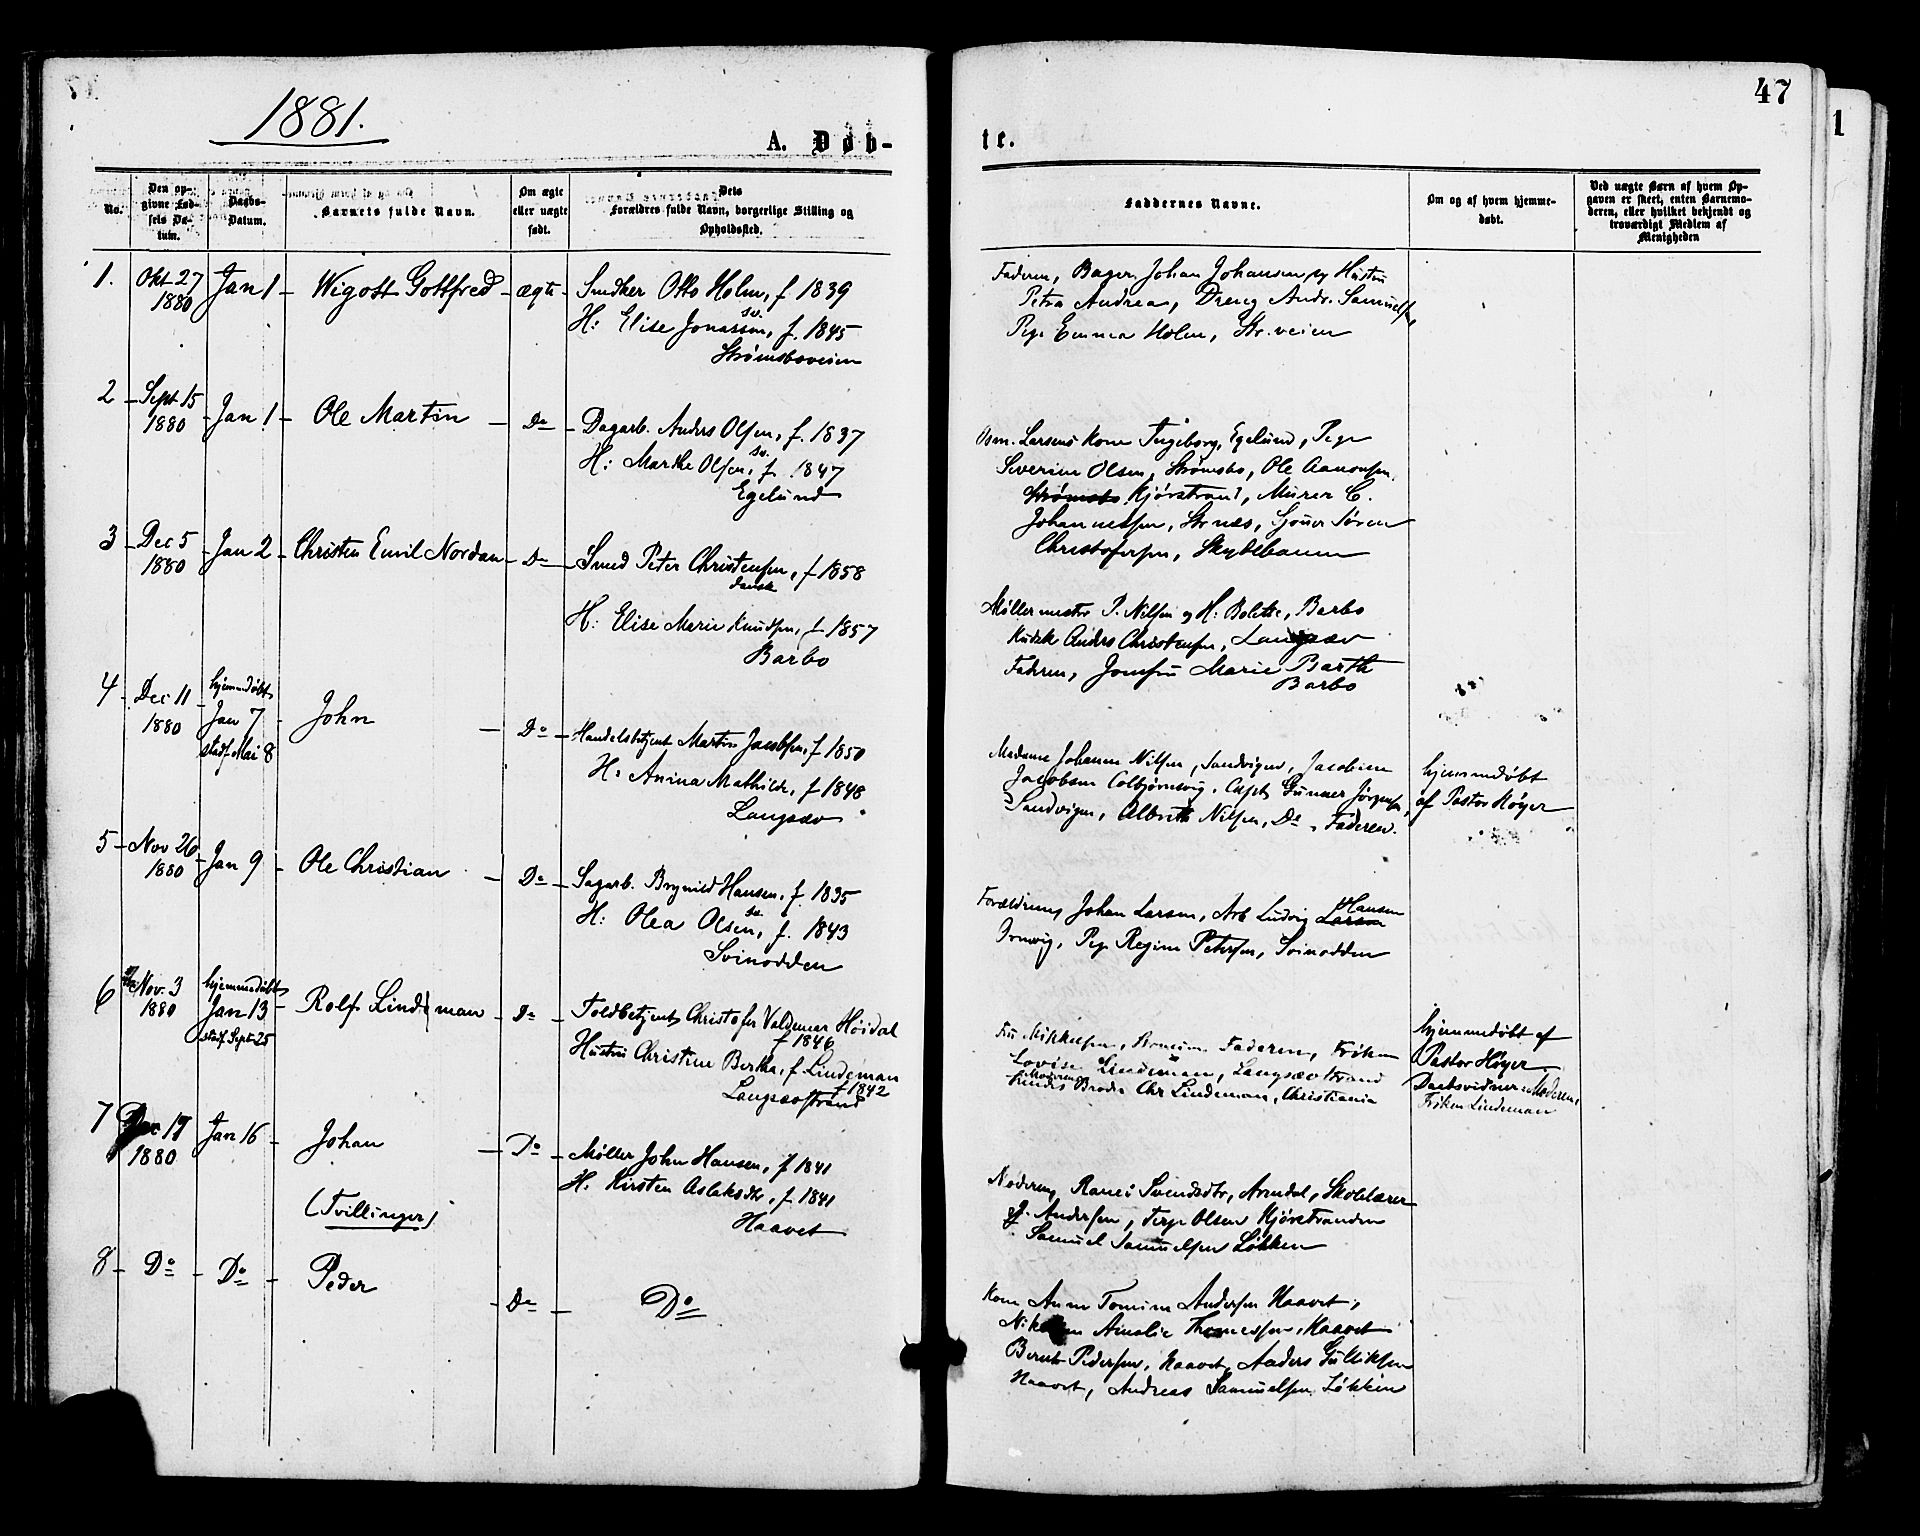 47
1881.
A. Døb-
te.
No.
Den op-
givne Fød-
sels Da-
tum.
Daabs-
Datum.
Barnets fulde Navn.
Om ægte
eller uægte
født.
Dets
Forældres fulde Navn, borgerlige Stilling og
Opholdssted.
Faddernes Navne.
Om og af hvem hjemme-
døbt.
Ved uægte Børn af hvem Op-
gaven er skeet, enten Barnemo-
deren, eller hvilket bekjendt og
troværdigt Medlem af
Menigheden
1.
Okt 27
1880
Jan 1
Wigott Gottfred
ægte
Snedker Otto Holm, f 1839
H: Elise Jonassen, sv. f. 1845
Strømsboveien
Faderen, Bager Johan Johansen og Hustru
Petra Andrea, Dreng Andr. Samuelsen,
Pige Emma Holm, Str.veien
2
Sept 15
1880
Jan 1
Ole Martin
Do
Dagarb. Anders Olsen, f. 1837
H: Marthe Olsen, sv. f. 1847
Egelund
Larsens Kone Ingeborg, Egelund, Pige
Severine Olsen, Strømsbo, Ole Aanonsen
Strømsbo Kjørstrand, Murer C.
Johannessen, Strnæs, Søren
Christofersen, Skytebanen
3
Dec 5
1880
Jan 2
Christen Emil Nordan
Do
Smed Peter Christensen, f 1858
dansk
H: Elise Marie Knudsen, f 1857
Barbo
Møllermester P. Nilsen og H: Bolette, Barbo
Kudsk Anders Christensen, Langsæv
Faderen, Jomfru Marie Barth
Barbo
4
Dec 11
1880
hjemmedøbt
Jan 7
stadf Mai 8
John
Do
Handelsbetjent Martin Jacobsen, f 1850
H: Anina Mathilde, f 1848
Langsæv
Madame Johanne Nilsen, Sandvigen, Jacobine
Jacobsen Colbjørnsvig, Capt. Gunner Jørgensen,
Sandvigen, Albreth Nilsen, Do, Faderen.
hjemmedøbt
af Pastor Høyer
5
Nov 26
1880
Jan 9
Ole Christian
Do
Sagarb. Brynild Hansen, f. 1835
H: Olea Olsen, sv. f. 1843
Svinodden
Forældrene, Johan Larsen, Arb Ludvig Larsen Hansen
Pige Regine Petersen, Svinodden
6
Nov. 3
1880
hjemmedøbt
Jan 13
stadf Sept 25
Rolf Lindeman
Do
Toldbetjent Christofer Valdemar Høidal
f 1846
Hustru Christine Bertha, f Lindeman
f 1842
Langsævstrand
Fru Mikkelsen, Faderen, Frøken
Lovise Lindeman, Langsævstrand
Moderens
Broder Chr Lindeman, Christiania
hjemmedøbt af
Pastor Høyer.
Daabsvidner: Moderen,
Frøken Lindeman
7
Dec 17
1880
Jan 16
Johan
Do
Møller John Hansen, f 1841
H. Kirsten Aslaksdtr, f. 1841
Haavet
(Tvillinger)
Moderen, Svendsdtr, Arendal, Skolelærer
Andersen, Terje Olsen Kjørstranden
Samuel Samuelsen Løkken
8
Do
Do
Peder
Do
Do
Kone Anne Tomine Andersen Haavet,
Amalie Thomessen, Haavet
Bernt Pedersen, Haavet, Anders Gulliksen
Haavet, Andreas Samuelsen Løkken